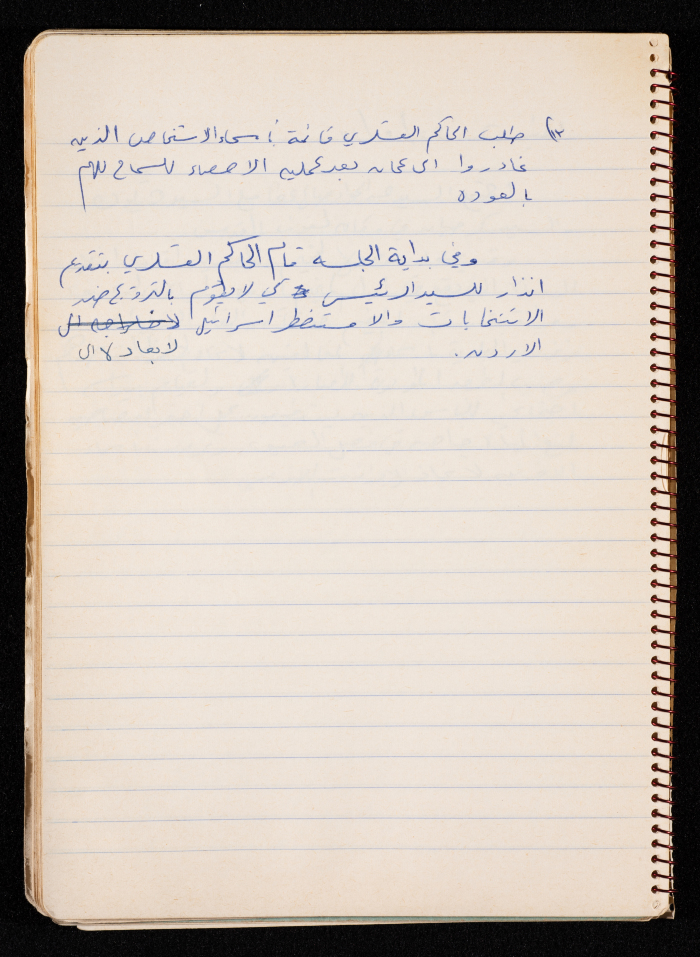 ١٣) طلب الحاكم العسكري قائمة بأسماء الاشخاص الذين
غادروا الى عمان بعد عمليه الاحصاء للسماح لهم
بالعوده
وفي بداية الجلسه قام الحاكم العسكري بتقديم
انذار للسيد الرئيس كي لا يقوم بالترويج ضد
الانتخابات والا ستضطر اسرائيل لاخراجه الى
لابعاده الى
الاردن.